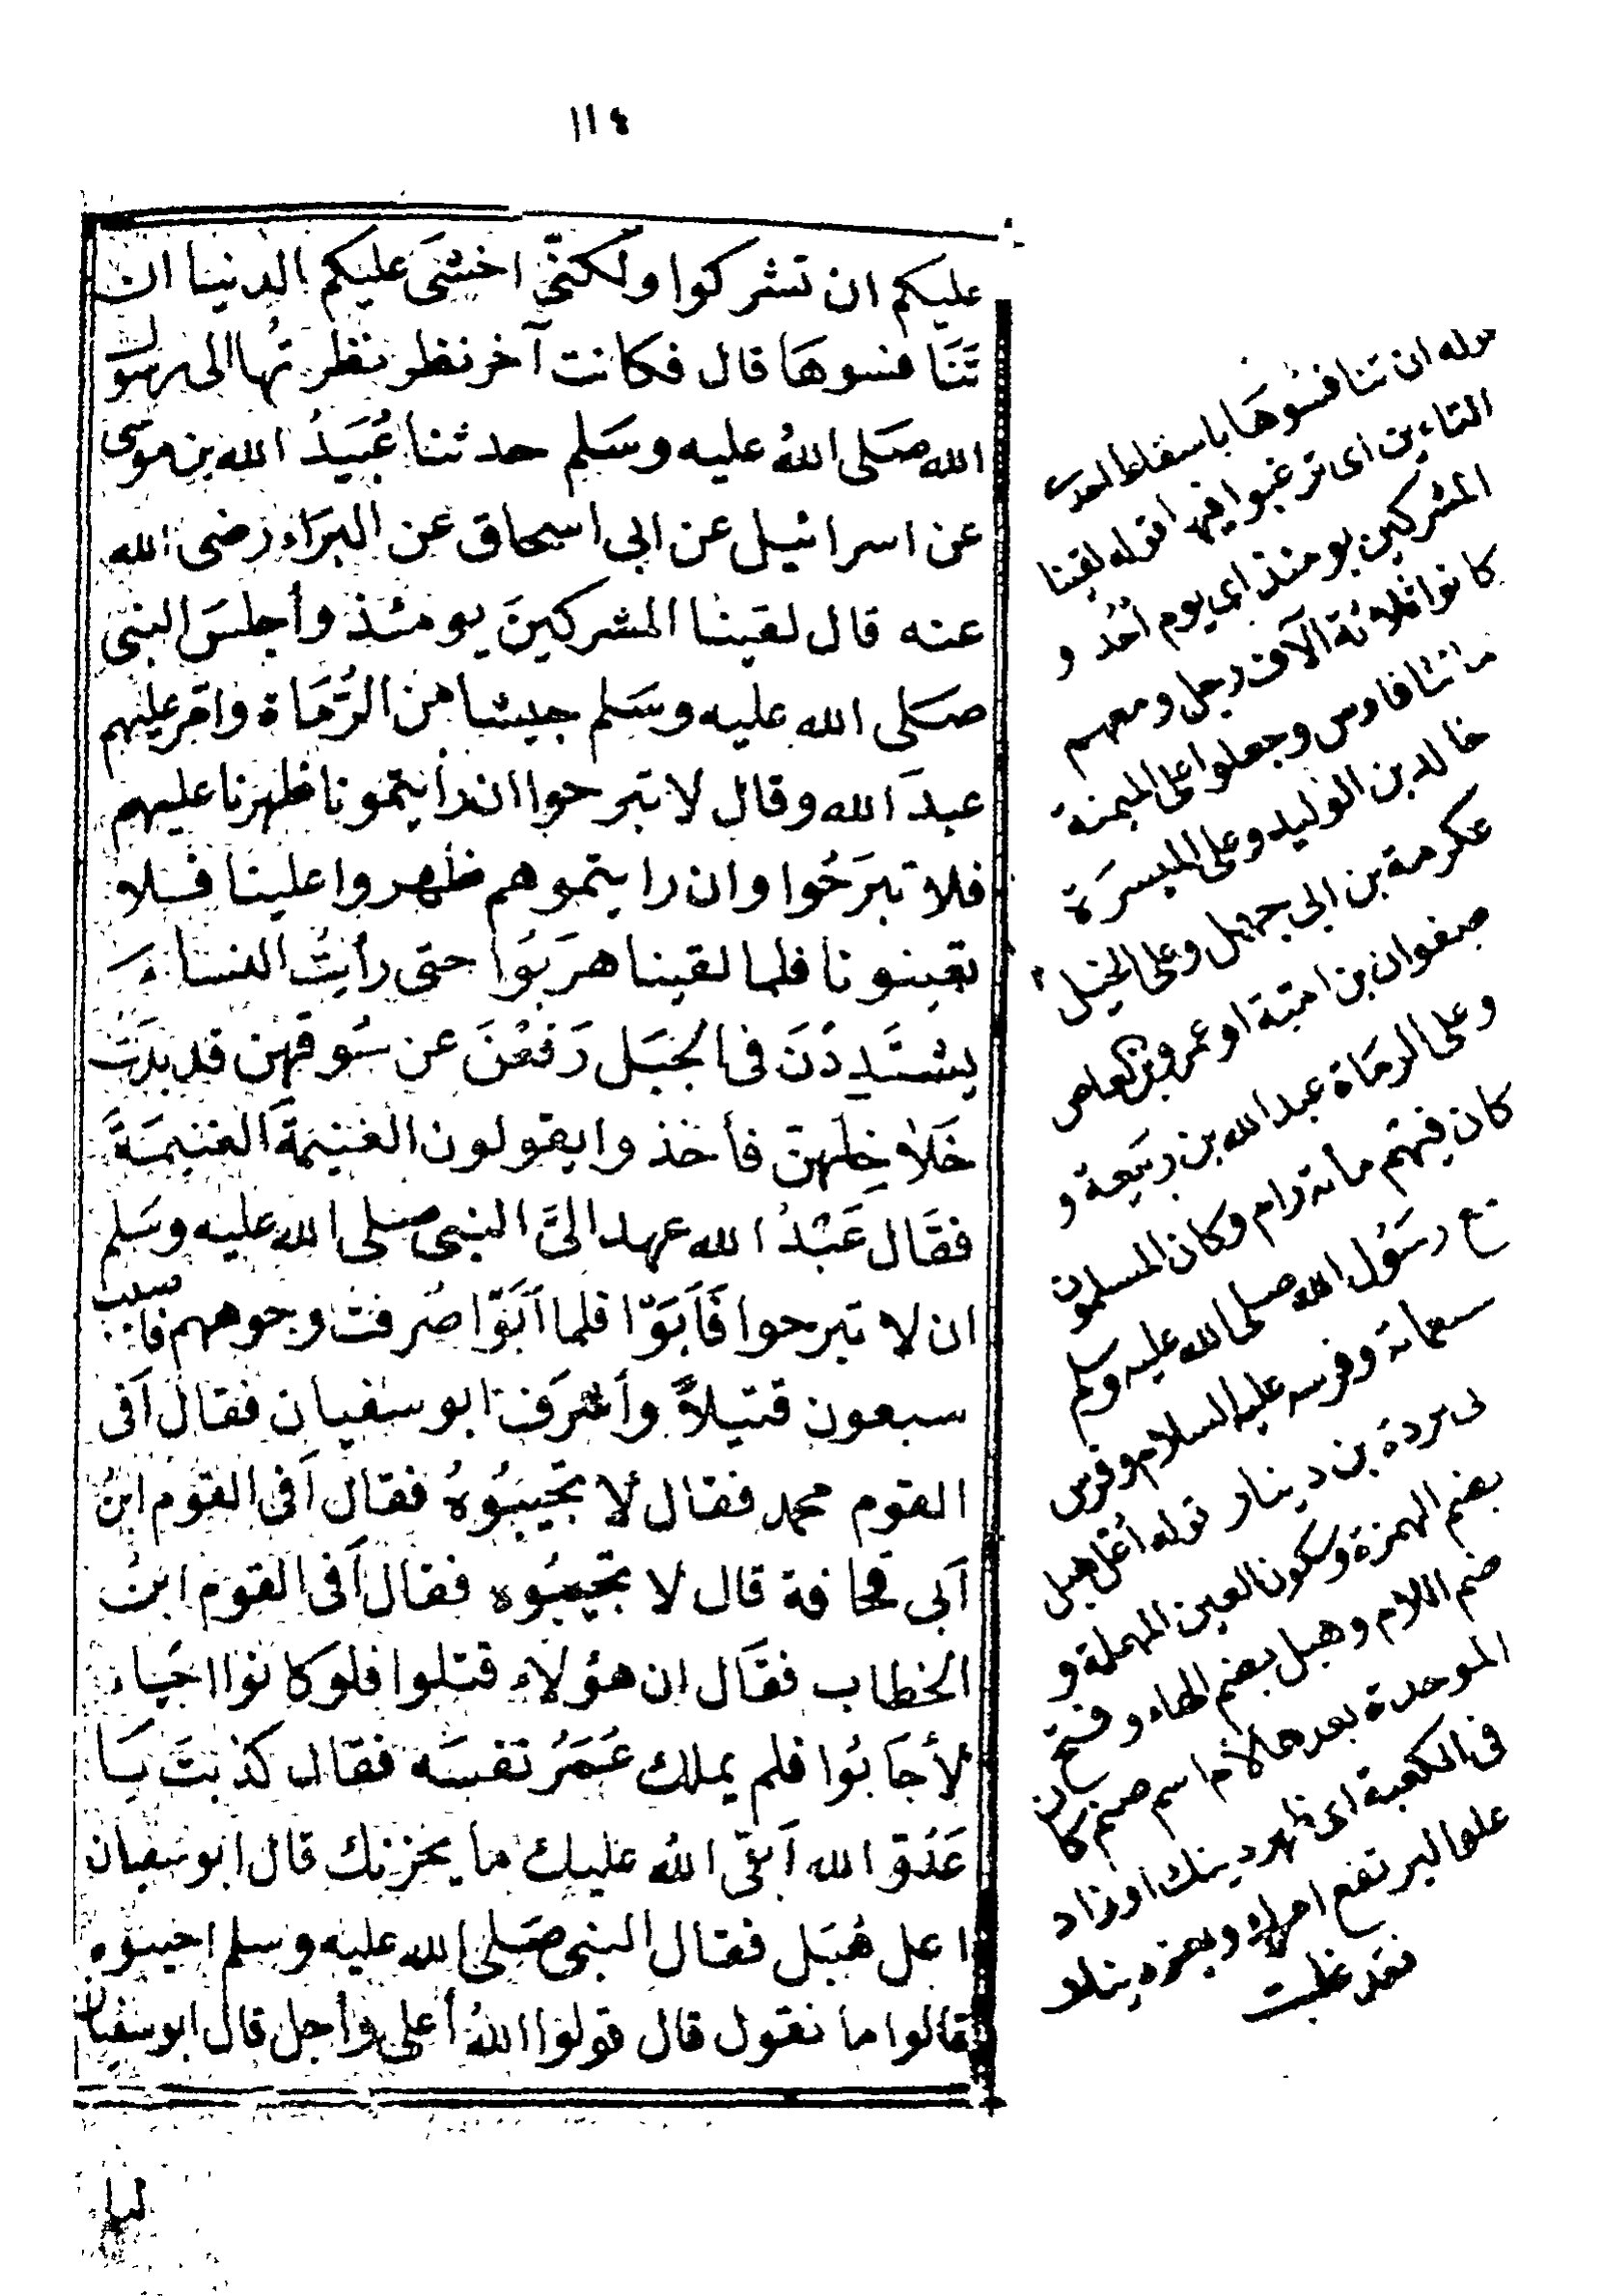 ١١٤
عليكم ان تشركوا ولكنّى اخشَى عليكم الدنيا ان
تَنَافسوهَا قال فكانت آخر نظر نظرتُها الى رسول
الله صَلى اللهُ عليه وسَلم حدثنا عُبَيدُ الله بن موسى
عن اسرائيل عن ابى اسحاق عن البَرَاء رَضى الله
عنه قال لقينا المشركينَ يومئذ وأجلسَ النبى
صَلى الله عليه وسَلم جيشا من الرُّمَاة وامّر عليهم
عبدَ الله وقال لا تبرحوا ان رأيتمونا ظهرنا عليهم
فلا تبرَحُوا وان رايتموهم ظهروا علينا فلا
تعينونا فلما لقينا هرَبُوا حتى رأيتُ النساء
يشتَدِدْنَ فى الجبَل رَفعْنَ عن سُوقهن قد بدَت
خَلاخِلهن فأخذوا يقولون الغنيمةَ الغنيمَةَ
فقَال عَبْدُ الله عهد الىَّ النبى صلى الله عليه وسَلم
ان لا تبرحوا فَاَبَوْا فلما اَبَوْا صُرفت وجوههم فاصيب
سبعون قتيلاً وأشرَف ابو سفيان فقال اَفى
القوم محمد فقال لا تجيبُوهُ فقال اَفى القوم ابنُ
اَبى قحافة قال لا تجيبُوه فقال اَفى القوم ابنُ
الخطاب فقَال ان هؤلاء قتلوا فلو كانوا احيَاء
لأجَابُوا فلم يملك عُمَرُ نفسَه فقال كذبتَ يَا
عَدُوّ الله اَبقى اللهُ عليك ما يحزنك قال ابو سفيان
اعل هُبَل فقال النبى صَلى الله عليه وسلم اجيبوه
قالوا ما نقول قال قولوا اللهُ أعلى وأجل قال ابو سفيان
لنا
قوله ان تنافسُوهَا باسقاط احدى
التاءين اى ترغبوا فيها قوله لقينا
المشركين يومئذ اى يوم اُحُد و
كانوا ثلاثة آلاف رجل ومعهم
مائتا فارس وجعلوا على الميمنة
خالد بن الوليد وعلى الميسرَة
عكرمة بن ابى جهل وعلى الخيل
صفوان بن امية او عمرو بن العاص
وعلى الرمَاة عبد الله بن ربيعة و
كان فيهم مائة رام وكان المسلمون
مع رسُول الله صلى الله عليه وسلم
سبعمائة وفرسه عليه السلام وفرس
لى بردة بن دينار قوله اُعْل هبل
بضم الهمزة وسكون العين المهملة و
ضم اللام وهبل بضم الهاء وفتح
الموحدة بعدها لام اسم صنم كان
فى الكعبة اى ظهر دينك او زاد
علوا ليرتفع امرك ويعز دينك
فقد غلبت